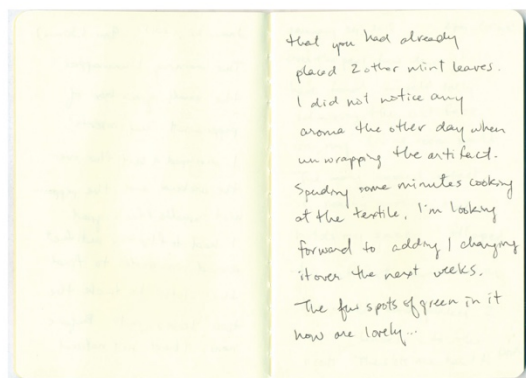 that you had already
placed 2 other mint leaves.
I did not notice any
aroma the other day when
unwrapping the artifact.
Spending some minutes looking
at the textile, I'm looking
forward to adding / changing
it over the next weeks.
The few spots of green in it
now are lovely...